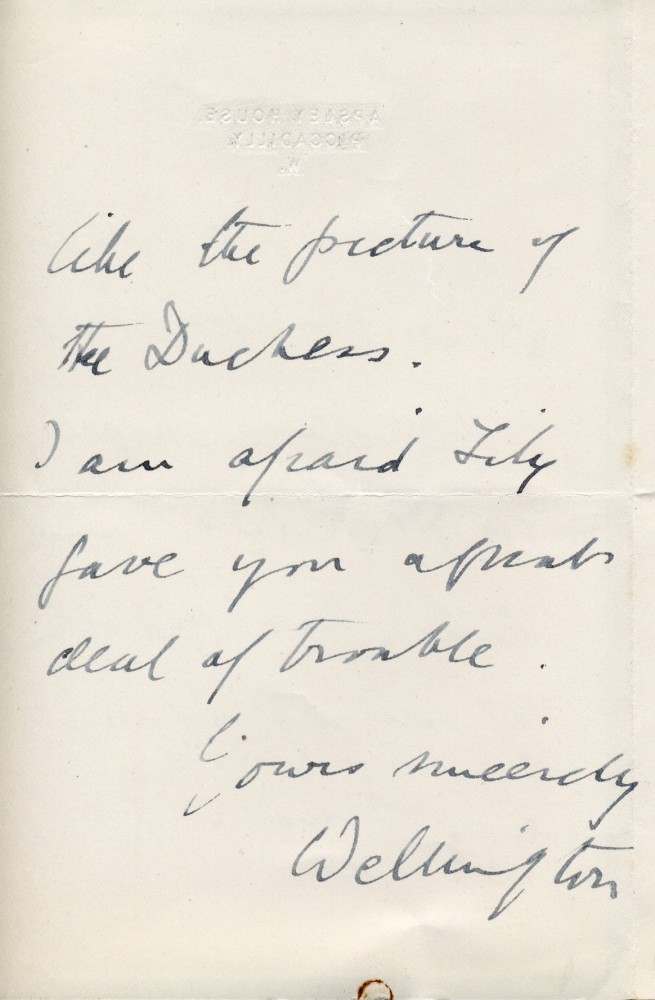 APSLEY HOUSE,
PICCADILLY.
W.
like the picture of
the Duchess.
I am afraid Lily
gave you a great
deal of trouble.
Yours sincerely
Wellington